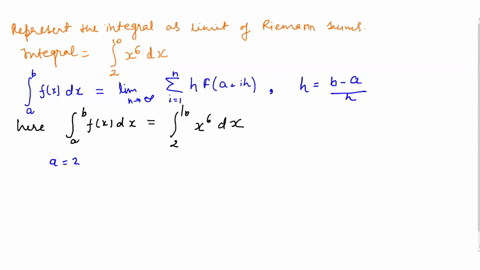 Represent the integral as limit of Riemann sums.
Integral = ∫_2^10 x^6 dx
∫_a^b f(x) dx = lim_{n→∞} ∑_{i=1}^n h f(a+ih) , h = (b-a)/n
here ∫_a^b f(x) dx = ∫_2^10 x^6 dx
a = 2